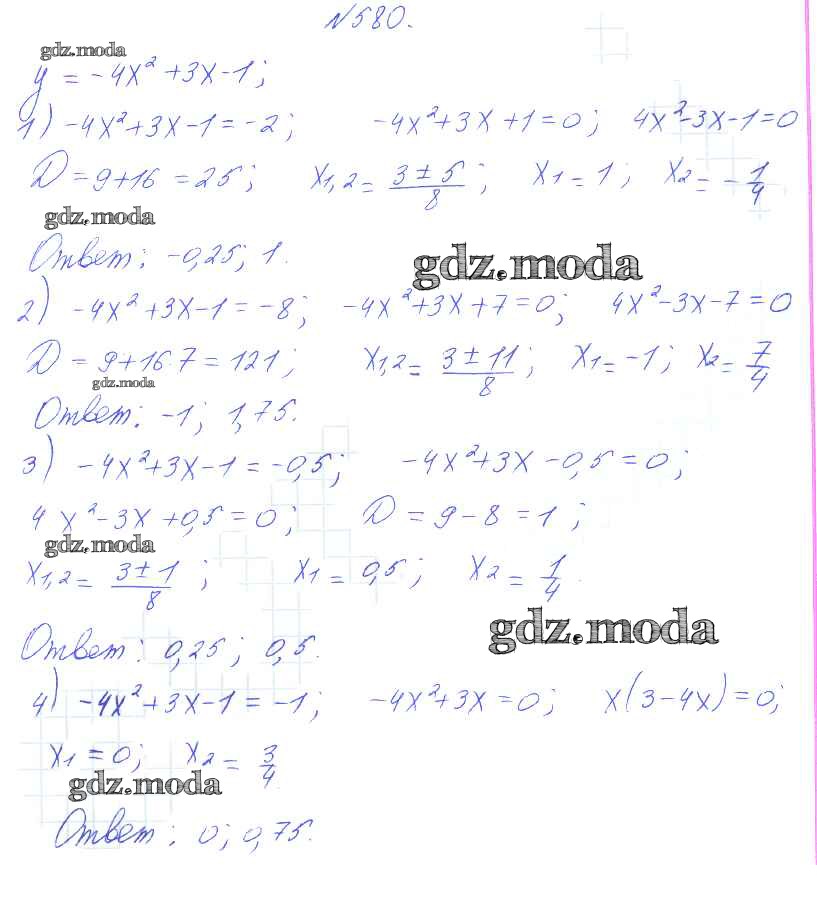 №580.
gdz.moda
y = -4x² + 3x - 1;
1) -4x² + 3x - 1 = -2; -4x² + 3x + 1 = 0; 4x² - 3x - 1 = 0
D = 9 + 16 = 25; x₁,₂ = (3 ± 5)/8; x₁ = 1; x₂ = -1/4
gdz.moda
Ответ: -0,25; 1.
gdz.moda
2) -4x² + 3x - 1 = -8; -4x² + 3x + 7 = 0; 4x² - 3x - 7 = 0
D = 9 + 16·7 = 121; x₁,₂ = (3 ± 11)/8; x₁ = -1; x₂ = 7/4
gdz.moda
Ответ: -1; 1,75.
3) -4x² + 3x - 1 = -0,5; -4x² + 3x - 0,5 = 0;
4x² - 3x + 0,5 = 0; D = 9 - 8 = 1;
gdz.moda
x₁,₂ = (3 ± 1)/8; x₁ = 0,5; x₂ = 1/4.
gdz.moda
Ответ: 0,25; 0,5.
4) -4x² + 3x - 1 = -1; -4x² + 3x = 0; x(3 - 4x) = 0;
x₁ = 0; x₂ = 3/4.
gdz.moda
Ответ: 0; 0,75.